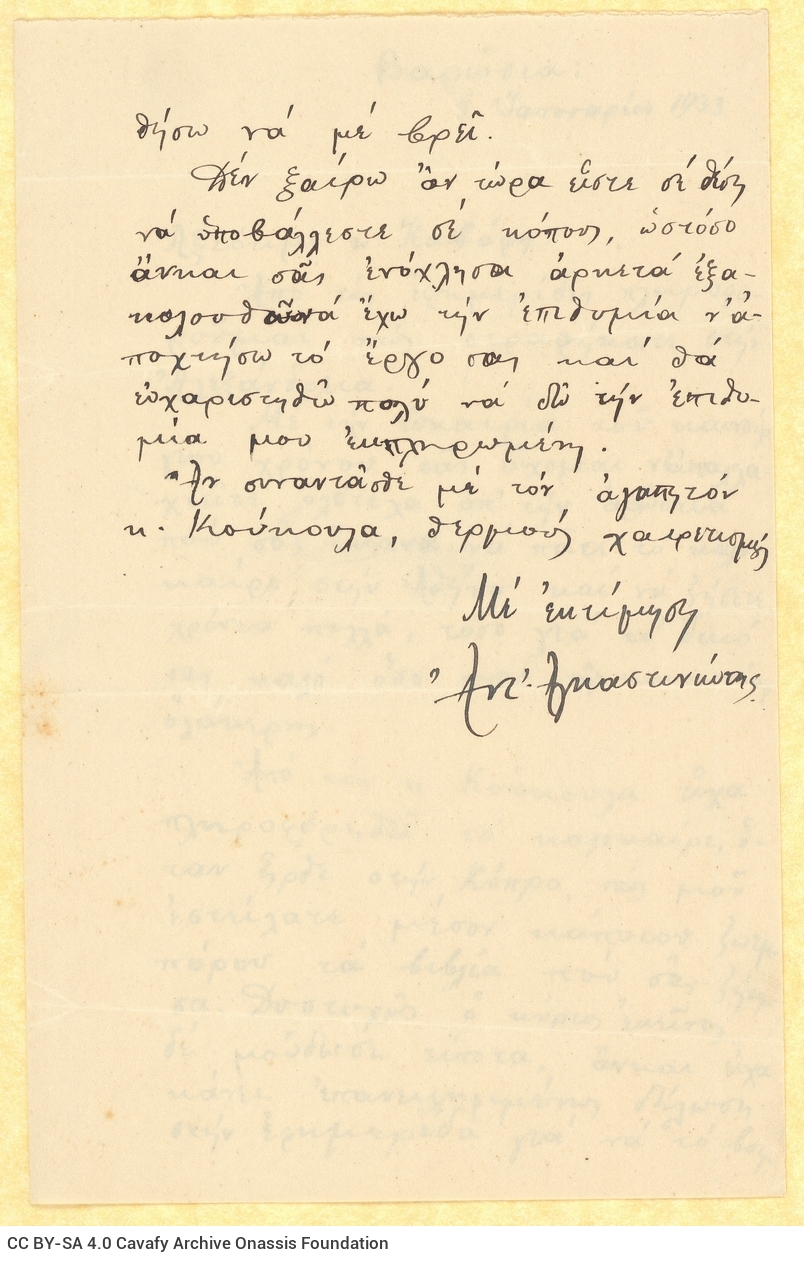 θήσω νά μέ βρεῖ.
Δέν ξαίρω ἄν τώρα εἶστε σέ θέση
νά ὑποβάλλεστε σέ κόπους, ὡστόσο
ἄνκαι σᾶς ἐνόχλησα ἀρκετά ἐξα-
κολουθῶ νά ἔχω τήν ἐπιθυμία ν' ἀ-
ποχτήσω τό ἔργο σας καί θά
εὐχαριστηθῶ πολύ νά δῶ τήν ἐπιθυ-
μία μου ἐκπληρωμένη.
Ἄν συναντᾶσθε μέ τόν ἀγαπητόν
κ. Κούκουλα, θερμούς χαιρετισμούς
Μέ ἐκτίμηση
Ἀντ.
CC BY-SA 4.0 Cavafy Archive Onassis Foundation